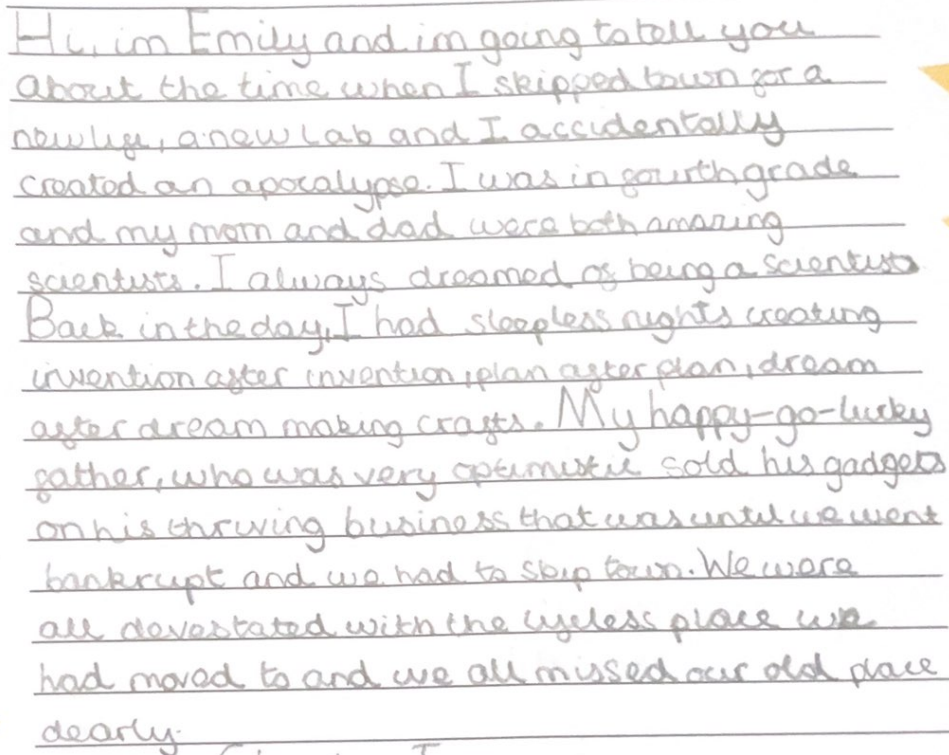 Hi, im Emily and im going to tell you
about the time when I skipped town for a
new life, a new Lab and I accidentally
created an apocalypse. I was in fourth grade
and my mom and dad were both amazing
scientists. I always dreamed of being a scientist
Back in the day, I had sleepless nights creating
invention after invention, plan after plan, dream
after dream making crafts. My happy-go-lucky
father, who was very optimistic sold his gadgets
on his thriving business that was until we went
bankrupt and we had to skip town. We were
all devastated with the lifeless place we
had moved to and we all missed our old place
dearly.